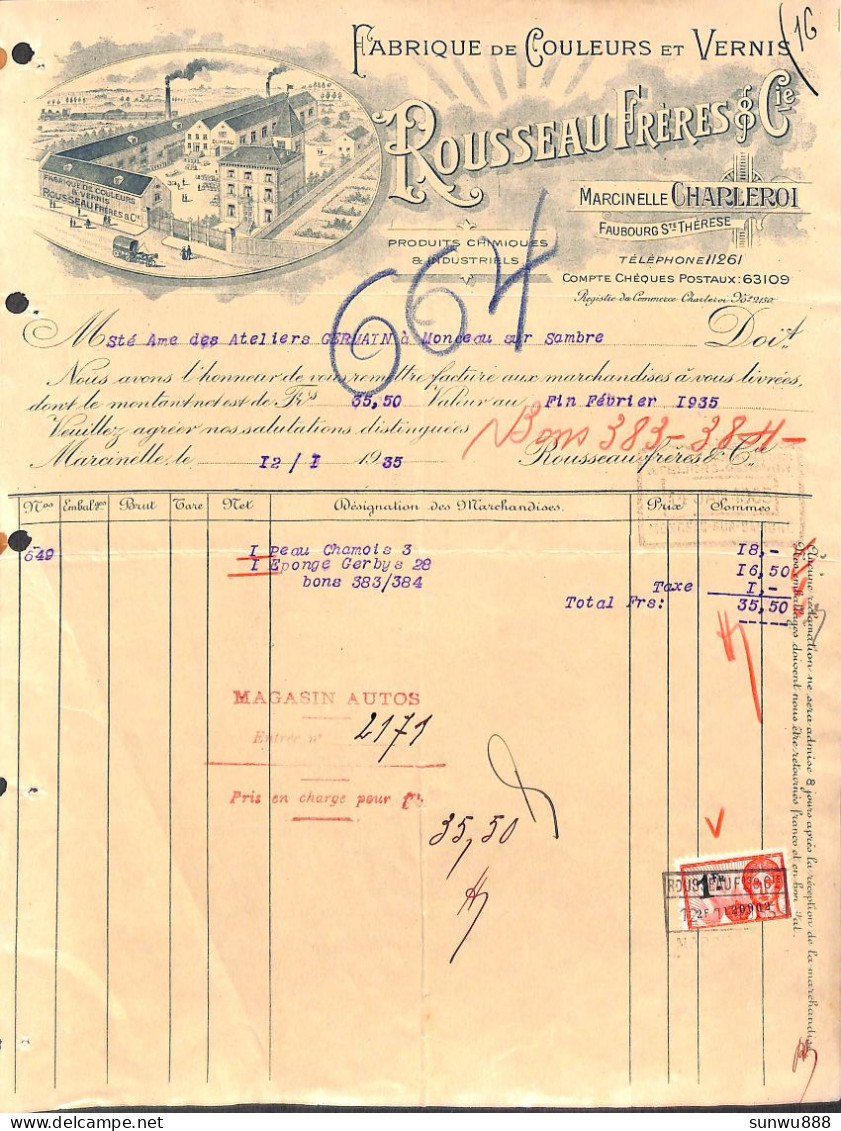 16
FABRIQUE DE COULEURS ET VERNIS
ROUSSEAU FRÈRES & Cie
FABRIQUE DE COULEURS
& VERNIS
ROUSSEAU FRÈRES & Cie
MARCINELLE CHARLEROI
FAUBOURG STE THÉRESE
PRODUITS CHIMIQUES
& INDUSTRIELS
TÉLÉPHONE 11261
COMPTE CHÈQUES POSTAUX: 63109
Registre du Commerce Charleroi No 2150
664
M Sté Ame des Ateliers GERMAIN à Monceau sur Sambre Doit
Nous avons l'honneur de vous remettre facture aux marchandises à vous livrées,
dont le montant net est de Frs 35,50 Valeur au Fin Février I935
Veuillez agréer nos salutations distinguées
Bons 383-384-
Marcinelle, le I2/I 1935 Rousseau frères & Cie
Nos Embalges Brut Tare Net Désignation des Marchandises. Prix Sommes
649 I Peau Chamois 3 I8,-
I Eponge Gerbys 28 I6,50
bons 383/384 Taxe I,-
Total Frs: 35,50
MAGASIN AUTOS
Entrée no 2171
Pris en charge pour frs
35,50
1 Fr
ROUSSEAU FRES & CIE
Aucune réclamation ne sera admise 8 jours après la réception de la marchandise
Les emballages doivent nous être retournés franco et en bon état.
sunwu888.com